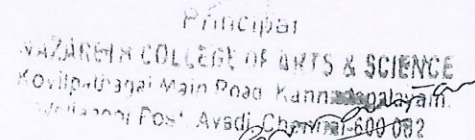 Principal
NAZARETH COLLEGE OF ARTS & SCIENCE
Kovilpathagai Main Road Kannadapalayam.
Post Avadi Chennai-600 062